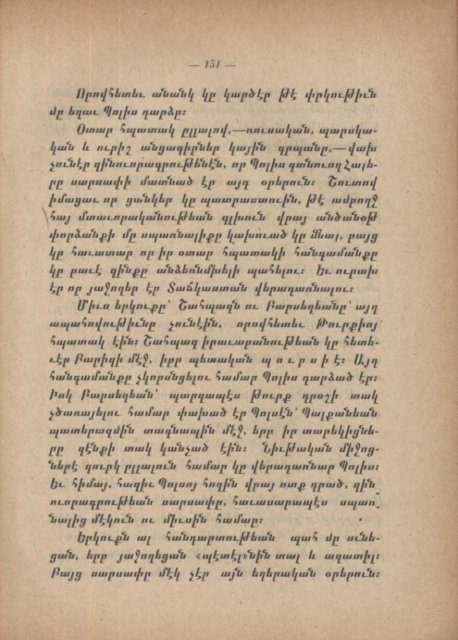 — 151 —
Որովհետեւ անանկ կը կարծէր թէ փրկութիւն
մը եղաւ Պոլիս դարձը։
Օտար հպատակ ըլլալով,—ռուսական, պարսկա-
կան և ուրիշ անցագիրներ կային գրպանը,— վախ
չունէր զինուորագրութենէն, որ Պոլիս գտնուող Հայե-
րը սարսափի մատնած էր այդ օրերուն։ Շուտով
իմացաւ որ ցանկեր կը պատրաստուին, թէ ամբողջ
հայ մտաւորականութեան գլխուն վրայ անծանօթ
փորձանքի մը սպառնալիքը կախուած կը մնայ, բայց
կը հաւատար որ իր օտար հպատակի հանգամանքը
կը բաւէ զինքը անձեռնմխելի պահելու։ Եւ ուրախ
էր որ յաջողեր էր Տաճկաստան վերադառնալու։
Միւս երկուքը՝ Շահպազն ու Բարսեղեանը՝ այդ
ապահովութիւնը չունէին, որովհետեւ Թուրքիոյ
հպատակ էին։ Շահպազ իրաւաբանութեան կը հետե-
ւէր Բարիզի մէջ, իբր պետական պուրսիէ։ Այդ
հանգամանքը չկորսնցելու համար Պոլիս դարձած էր։
Իսկ Բարսեղեան՝ պարզապէս թուրք դրօշի տակ
չծառայելու համար փախած էր Պոլսէն՝ Պալքանեան
պատերազմին տագնապին մէջ, երբ իր տարեկիցնե-
րը զէնքի տակ կանչած էին։ Նիւթական միջոց-
ներէ զուրկ ըլլալուն համար կը վերադառնար Պոլիս։
Եւ հիմայ, հազիւ Պոլսոյ հողին վրայ ոտք դրած, զին
ուորագրութեան սարսափը, հաւասարապէս սպառ
նալից մէկուն ու միւսին համար։
Երկուքն ալ հանդարտութեան պահ մը ունե-
ցան, երբ յաջողեցան «պէտէլ»նին տալ և ազատիլ։
Բայց սարսափը մէկ չէր այն եղերական օրերուն։